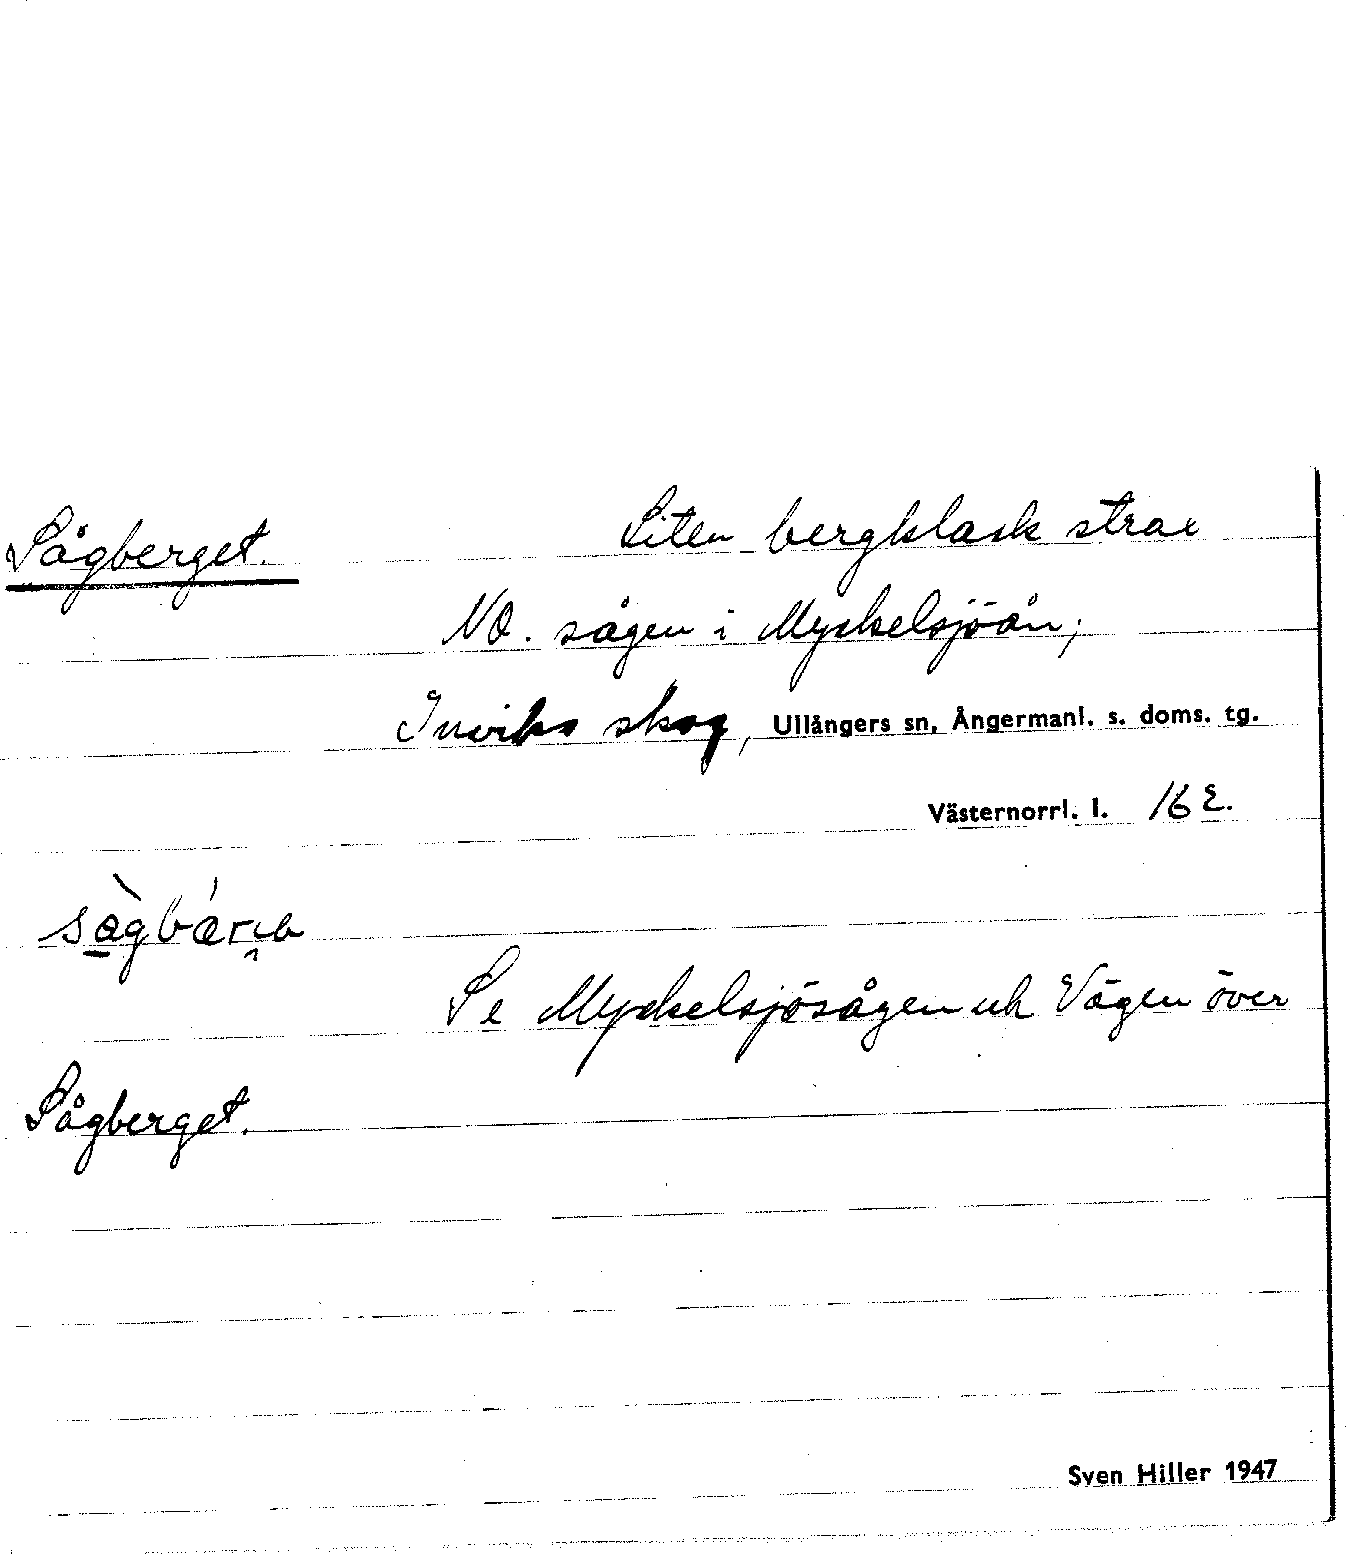 Sågberget. Liten bergklack strax
NO. sågen i Myckelsjöån;
Inviks skog, Ullångers sn, Ångermanl. s. doms. tg.
Västernorrl. l. 16 E.
Se Myckelsjösågen och Vägen över
Sågberget.
Sven Hiller 1947